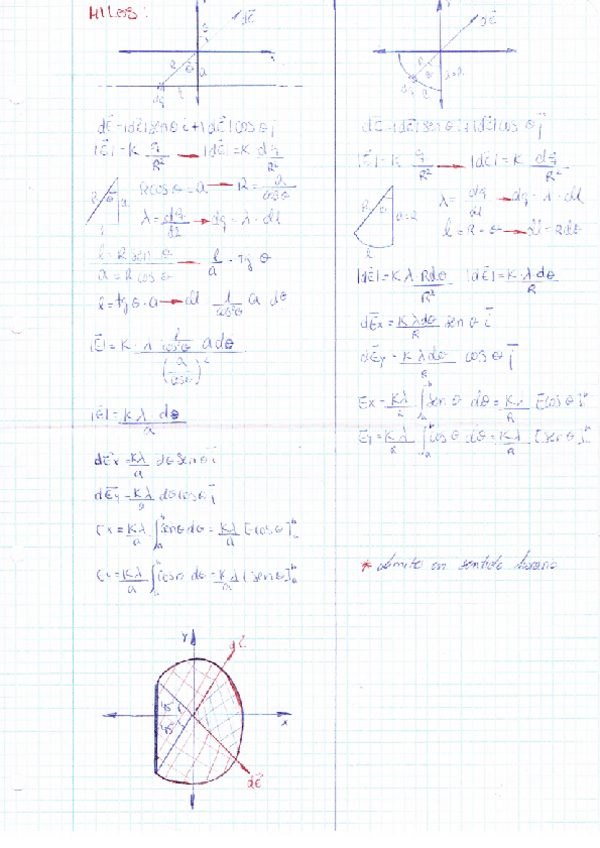 HILOS:
dE
R θ a
dq
dE = |dE| sen θ i + |dE| cos θ j
|E| = K q/R² → |dE| = K dq/R²
R cos θ = a → R = a/cos θ
λ = dq/dl → dq = λ · dl
l = R sen θ
a = R cos θ
l/a = tg θ
l = tg θ · a → dl 1/cos²θ a dθ
|E| = K · λ · 1/cos²θ a dθ / (a/cos θ)²
|E| = K λ · dθ / a
dEx = Kλ/a dθ sen θ i
dEy = Kλ/a dθ cos θ j
Ex = Kλ/a ∫ sen θ dθ = Kλ/a [-cos θ]
= Kλ/a ∫ cos θ dθ = Kλ/a [sen θ]
y
dE
45°
45°
x
dE
dE
R θ
dq
dE = |dE| sen θ i + |dE| cos θ j
|E| = K q/R² → |dE| = K dq/R²
λ = dq/dl → dq = λ · dl
l = R · θ → dl = R dθ
|dE| = K λ · R dθ / R² |dE| = K · λ · dθ / R
dEx = K λ dθ / R sen θ i
dEy = K λ dθ / R cos θ j
Ex = Kλ/R ∫ sen θ dθ = Kλ/R [-cos θ]
Ey = Kλ/R ∫ cos θ dθ = Kλ/R [sen θ]
* limite en sentido horario